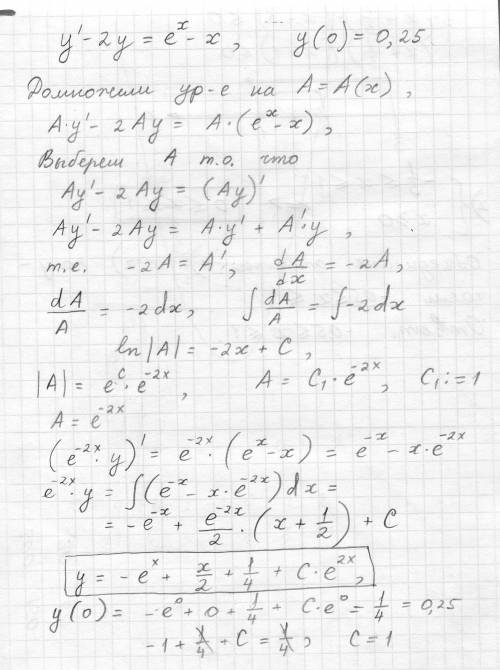 y' - 2y = e^x - x , y(0) = 0,25
Домножим ур-е на A = A(x) ,
A·y' - 2Ay = A·(e^x - x) ,
Выберем A т.о. что
Ay' - 2Ay = (Ay)'
Ay' - 2Ay = A·y' + A'·y ,
т.е. -2A = A' , dA/dx = -2A ,
dA/A = -2dx , ∫ dA/A = ∫ -2dx
ln|A| = -2x + C ,
|A| = e^C · e^{-2x} , A = C₁·e^{-2x} , C₁ := 1
A = e^{-2x}
(e^{-2x}·y)' = e^{-2x}·(e^x - x) = e^{-x} - x·e^{-2x}
e^{-2x}·y = ∫(e^{-x} - x·e^{-2x})dx =
= -e^{-x} + e^{-2x}/2 · (x + 1/2) + C
y = -e^x + x/2 + 1/4 + C·e^{2x} ,
y(0) = -e^0 + 0 + 1/4 + C·e^0 = 1/4 = 0,25
-1 + 1/4 + C = 1/4 ; C = 1